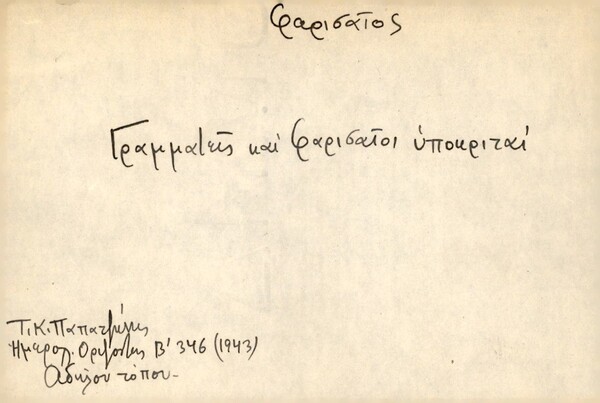 Φαρισαῖος
Γραμματεῖς καί Φαρισαῖοι ὑποκριταί
Τ.Κ. Παπατζήμης
Ἡμερολ. Ὁρίζοντες Β' 346 (1943)
Ἀδήλου τόπου-